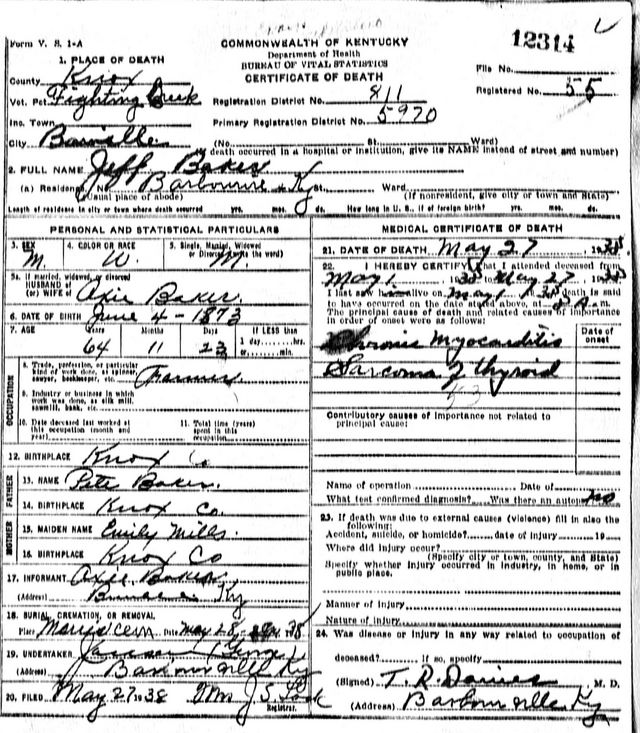 Form V. S. 1-A
COMMONWEALTH OF KENTUCKY
Department of Health
BUREAU OF VITAL STATISTICS
CERTIFICATE OF DEATH
12314
File No.
Registered No. 55
1. PLACE OF DEATH
County Knox
Vot. Pct. Fighting Creek
Inc. Town
City
Registration District No. 811
Primary Registration District No. 5970
(No. St. Ward)
(If death occurred in a hospital or institution, give its NAME instead of street and number)
2. FULL NAME Jeff Baker
(a) Residence, No. Ky St., Ward
(Usual place of abode) (If nonresident, give city or town and State)
Length of residence in city or town where death occurred yrs. mos. ds. How long in U. S., if of foreign birth? yrs. mos. ds.
PERSONAL AND STATISTICAL PARTICULARS
3. SEX M. 4. COLOR OR RACE W. 5. Single, Married, Widowed or Divorced (write the word) M.
5a. If married, widowed, or divorced
HUSBAND of
(or) WIFE of Axie Baker
6. DATE OF BIRTH June 4 - 1873
7. AGE Years Months Days If LESS than
64 11 23 1 day, hrs.
or min.
OCCUPATION
8. Trade, profession, or particular
kind of work done, as spinner,
sawyer, bookkeeper, etc. Farmer
9. Industry or business in which
work was done, as silk mill,
sawmill, bank, etc.
10. Date deceased last worked at
this occupation (month and
year)
11. Total time (years)
spent in this
occupation
12. BIRTHPLACE Knox Co
FATHER
13. NAME Pete Baker
14. BIRTHPLACE Knox Co.
MOTHER
15. MAIDEN NAME Emily Mills.
16. BIRTHPLACE Knox Co
17. INFORMANT Axie Baker
(Address) Ky
18. BURIAL, CREMATION, OR REMOVAL
Place Date May 28 1938
19. UNDERTAKER
(Address) Barbourville Ky
20. FILED May 27 1938 Mrs J. S.
Registrar.
MEDICAL CERTIFICATE OF DEATH
21. DATE OF DEATH May 27, 1938.
22. I HEREBY CERTIFY, that I attended deceased from
May 1, 1938 to May 27 1938
I last saw him alive on May 1 1938 death is said
to have occurred on the date stated above, at A. m.
The principal cause of death and related causes of importance
in order of onset were as follows:
Date of
onset
Chronic Myocarditis
Sarcoma of thyroid
53
Contributory causes of importance not related to
principal cause:
Name of operation Date of
What test confirmed diagnosis? Was there an autopsy? no
23. If death was due to external causes (violence) fill in also the
following:
Accident, suicide, or homicide? date of injury 19
Where did injury occur?
(Specify city or town, county, and State)
Specify whether injury occurred in industry, in home, or in
public place.
Manner of injury
Nature of injury
24. Was disease or injury in any way related to occupation of
deceased? If so, specify
(Signed) T. R. Davies M. D.
(Address) Barbourville Ky